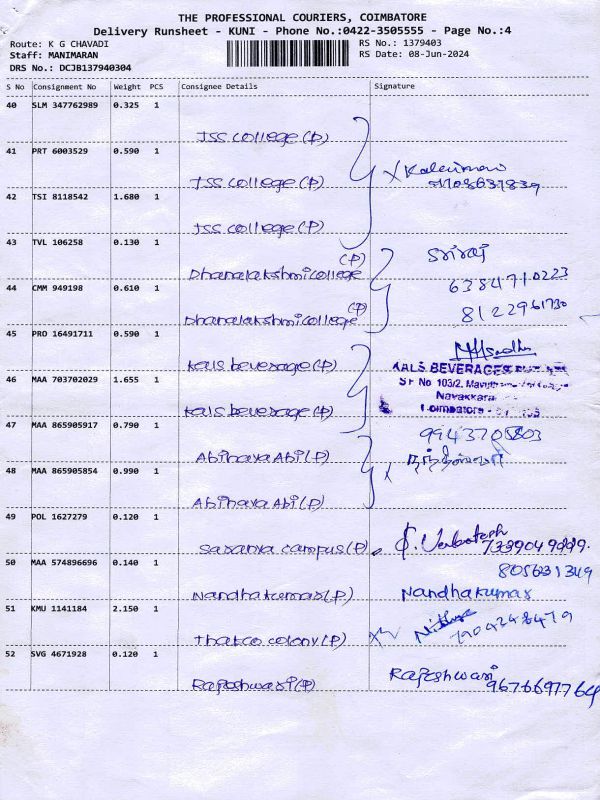 THE PROFESSIONAL COURIERS, COIMBATORE
Delivery Runsheet - KUNI - Phone No.:0422-3505555 - Page No.:4
Route: K G CHAVADI RS No.: 1379403
Staff: MANIMARAN RS Date: 08-Jun-2024
DRS No.: DCJB137940304
S No Consignment No Weight PCS Consignee Details Signature
40 SLM 347762989 0.325 1
JSS College (P)
41 PRT 6003529 0.590 1
JSS College (P)
42 TSI 8118542 1.680 1
JSS College (P)
43 TVL 106258 0.130 1 Sriraj
Dhanalakshmi college (P)
44 CMM 949198 0.610 1 6384710223
Dhanalakshmi college (P)
45 PRO 16491711 0.590 1
Kals beverage (P) KALS BEVERAGES
46 MAA 703702029 1.655 1 SF No 103/2,
Navakkara
Kals beverage (P) Coimbatore
47 MAA 865905917 0.790 1
Abinaya Abi (P)
48 MAA 865905854 0.990 1
Abinaya Abi (P)
49 POL 1627279 0.120 1
Saranya campus (P) 7339049999.
50 MAA 574896696 0.140 1 805631349
Nandhakumar (P) Nandhakumar
51 KMU 1141184 2.150 1 Nithya
Thatco colony (P) 7904348479
52 SVG 4671928 0.120 1 Rajeshwari
Rajeshwari (P) 9676697764